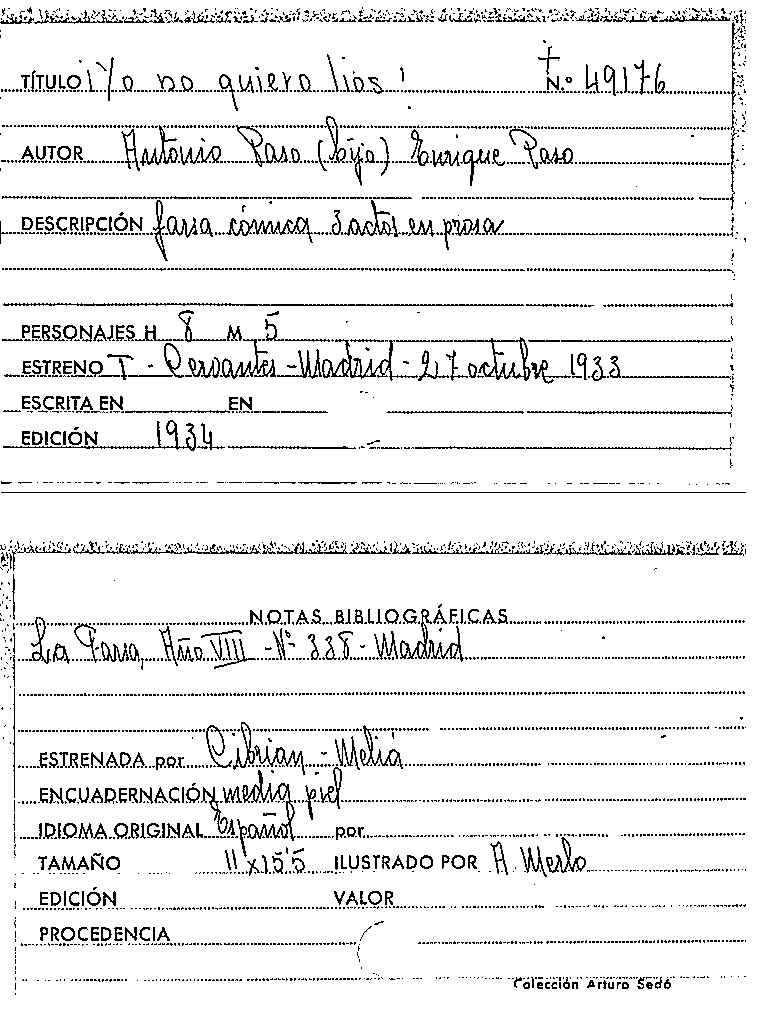 TÍTULO ¡Yo no quiero lios! N.º 49176
AUTOR Antonio Paso (hijo) Enrique Paso
DESCRIPCIÓN farsa cómica 3 actos en prosa
PERSONAJES H 8 M 5
ESTRENO T - Cervantes - Madrid - 27 octubre 1933
ESCRITA EN EN
EDICIÓN 1934
NOTAS BIBLIOGRÁFICAS
La Farsa, Año VIII - Nº 338 - Madrid
ESTRENADA por Cibrian - Meliá
ENCUADERNACIÓN media piel
IDIOMA ORIGINAL Español por
TAMAÑO 11 x 15'5 ILUSTRADO POR A. Merlo
EDICIÓN VALOR
PROCEDENCIA
Colección Arturo Sedó